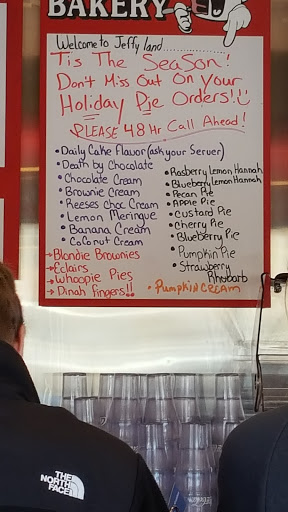 BAKERY
Welcome to Jeffy land.........
Tis The Season!
Don't Miss Out On your
Holiday Pie Orders!!
PLEASE 48 Hr Call Ahead!
• Daily Cake Flavor (ask your Server)
• Death by Chocolate
• Chocolate Cream
• Brownie Cream
• Reeses Choc Cream
• Lemon Meringue
• Banana Cream
• Coconut Cream
→ Blondie Brownies
→ Eclairs
→ Whoopie Pies
→ Dinah Fingers!!
• Rasberry Lemon Hannah
• Blueberry Lemon Hannah
• Pecan Pie
• Apple Pie
• Custard Pie
• Cherry Pie
• Blueberry Pie
• Pumpkin Pie
• Strawberry
Rhubarb
• Pumpkin CREAM
THE
NORTH
FACE